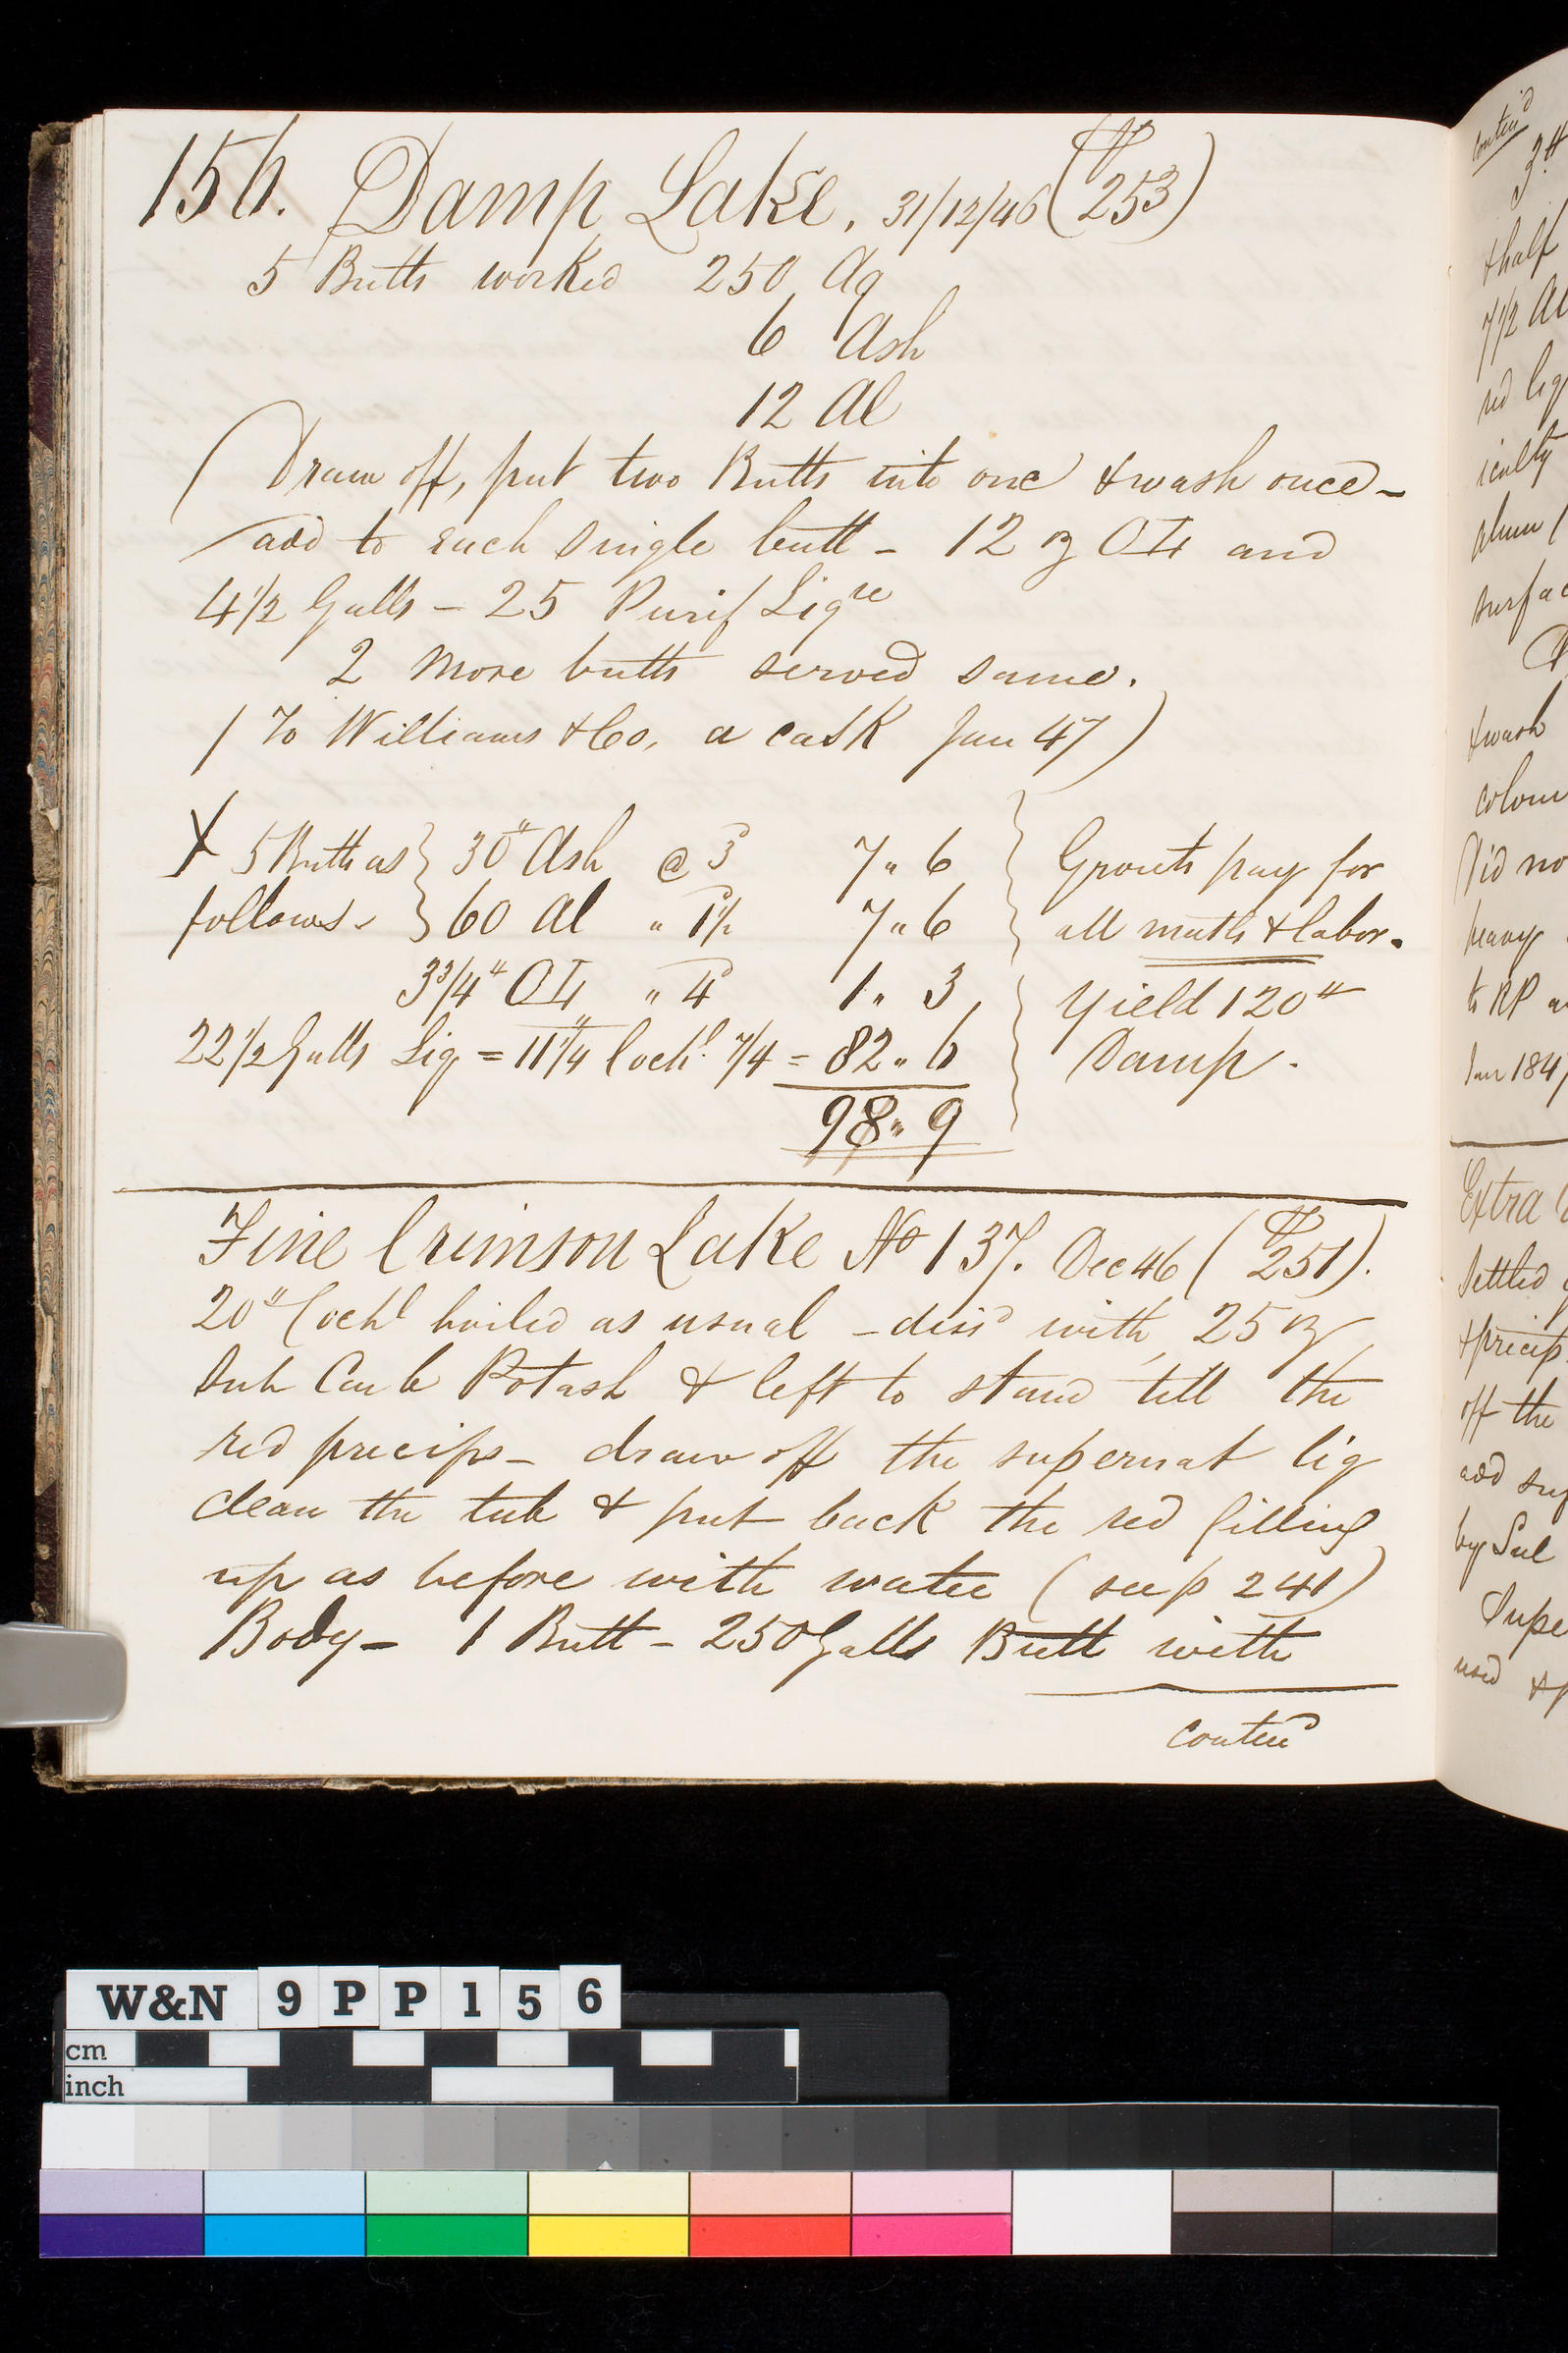 156. Damp Lake. 31/12/46 (P 253)
5 Butts worked 250 Aq
6 Ash
12 Al
(Draw off, put two Butts into one & wash once –
add to each single butt – 12 oz and
4 1/2 Galls – 25 Purif Liqre
2 more butts served same.
(To Williams & Co. a cask Jan 47)
X 5 Butts as } 30" Ash @ 3d 7 " 6 } Grouts pay for
follows – } 60 Al " 1 1/2 7 " 6 } all matls & labor.
3 3/4" " 4d 1 " 3, } Yield 120"
22 1/2 Galls Liq = 11 1/4" Cochl. 7/4 = 82 " 6 } Damp.
98 " 9
Fine Crimson Lake No 137. Dec 46 (P 251).
20" Cochl boiled as usual – diss'd with 25 oz
Sub Carb Potash & left to stand till the
red precips – draw off the supernat liq
clean the tub & put back the red filling
up as before with water (see p 241)
Body – 1 Butt – 250 Galls Butt with
contind
contind
& half
7 1/2 Al
red liq
iculty
alum (
surfac
& wash
colour
Did no
heavy
to RP a
Jan 184
Extra
Settled
& precip
off the
add su
by Sul
Supe
used & p
W&N 9PP156
cm
inch